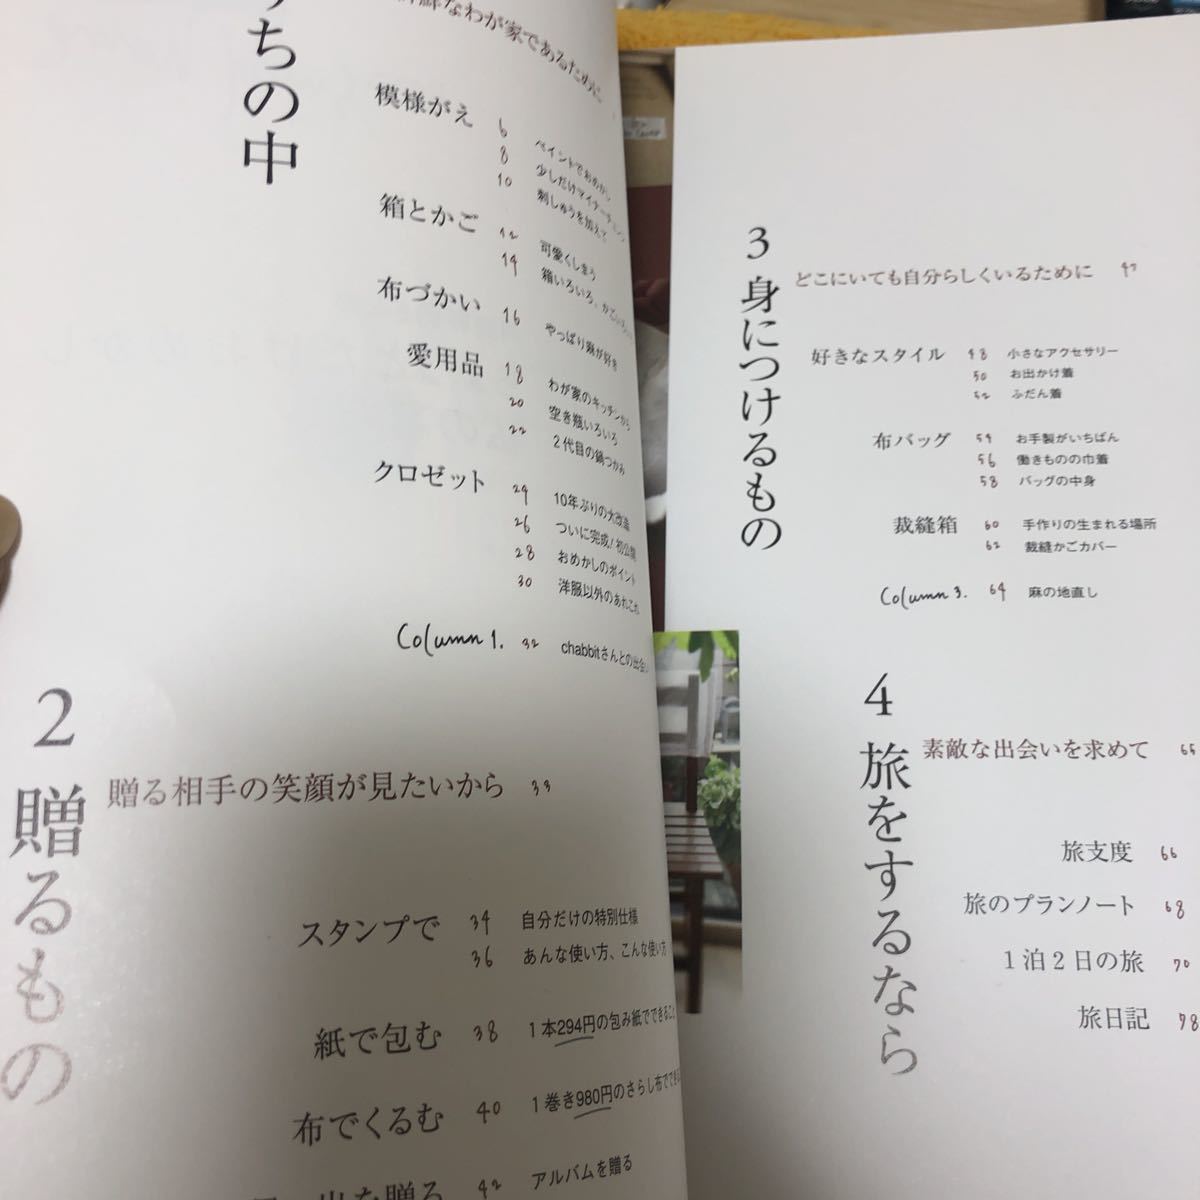 ちの中
なわが家であるために
模様がえ
6 ペイントでおめかし
8 少しだけマイナーチェンジ
10 刺しゅうを加えて
箱とかご
12 可愛くしまう
14 箱いろいろ、かご
布づかい
16 やっぱり麻が好き
愛用品
18 わが家のキッチンから
20 空き瓶いろいろ
22 2代目の鍋つかみ
クロゼット
24 10年ぶりの大改造
26 ついに完成!初公開
28 おめかしのポイント
30 洋服以外のあれこれ
Column 1. 32 chabbitさんとの出会い
2 贈るもの
贈る相手の笑顔が見たいから 33
スタンプで 34 自分だけの特別仕様
36 あんな使い方、こんな使い方
紙で包む 38 1本294円の包み紙でできること
布でくるむ 40 1巻き980円のさらし布でできる
出を贈る 42 アルバムを贈る
3 身につけるもの
どこにいても自分らしくいるために 47
好きなスタイル 48 小さなアクセサリー
50 お出かけ着
52 ふだん着
布バッグ 54 お手製がいちばん
56 働きものの巾着
58 バッグの中身
裁縫箱 60 手作りの生まれる場所
62 裁縫かごカバー
Column 3. 64 麻の地直し
4 旅をするなら
素敵な出会いを求めて 65
旅支度 66
旅のプランノート 68
1泊2日の旅 70
旅日記 78